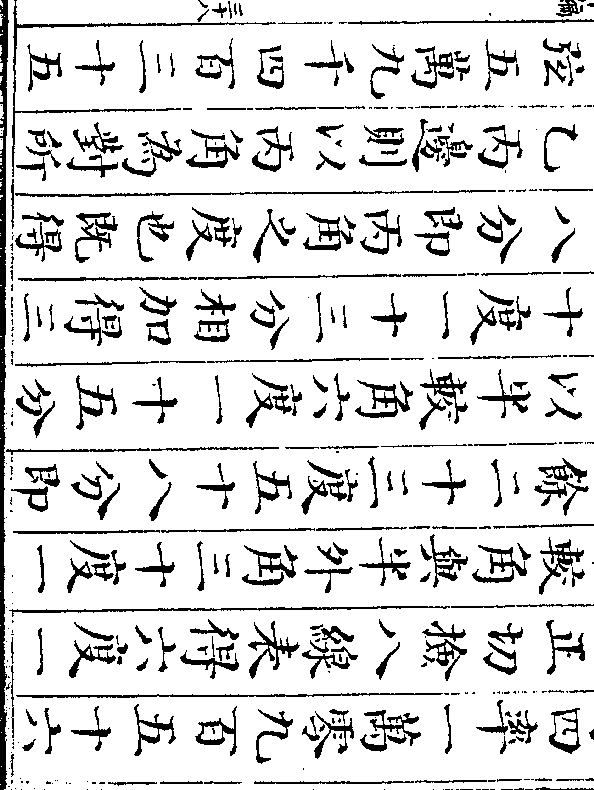 四率一萬零九百五十六
正切檢八線表得六度一
較角與半外角三十度一
餘二十三度五十八分即
以半較角六度一十五分
十度一十三分相加得三
八分即丙角之度也既得
乙丙邊則以丙角為對所
弦五萬九千四百三十五